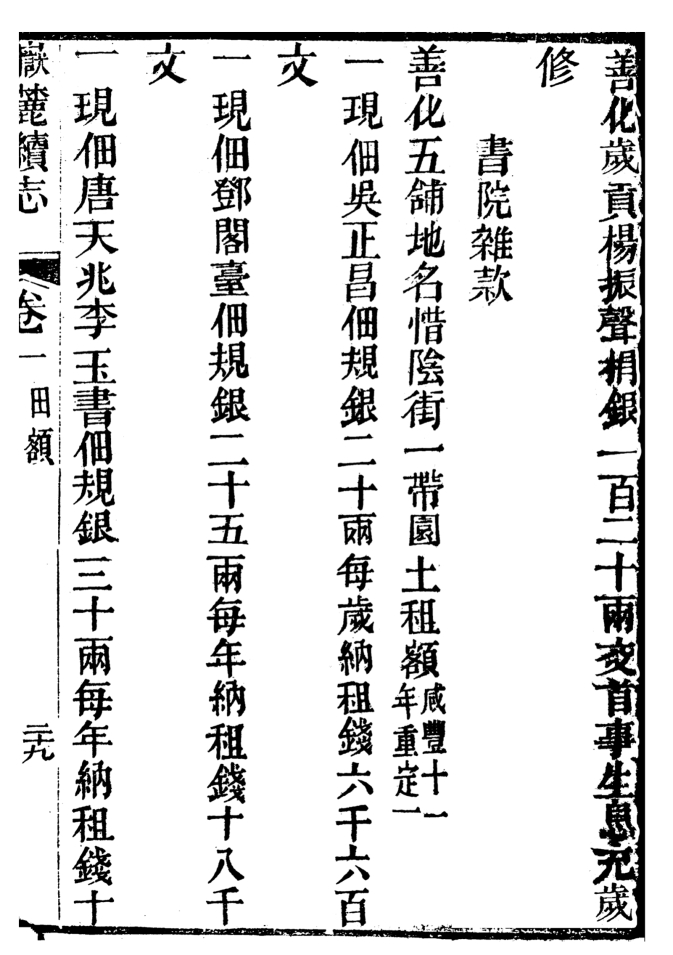 善化歲貢楊振聲捐銀一百二十兩交首事生息充歲
修
書院雜款
善化五舖地名惜陰街一帶園土租額咸豐十一年重定
一現佃吳正昌佃規銀二十兩每歲納租錢六千六百
文
一現佃鄧閣臺佃規銀二十五兩每年納租錢十八千
文
一現佃唐天兆李玉書佃規銀三十兩每年納租錢十
嶽麓續志 卷一 田額 二十九